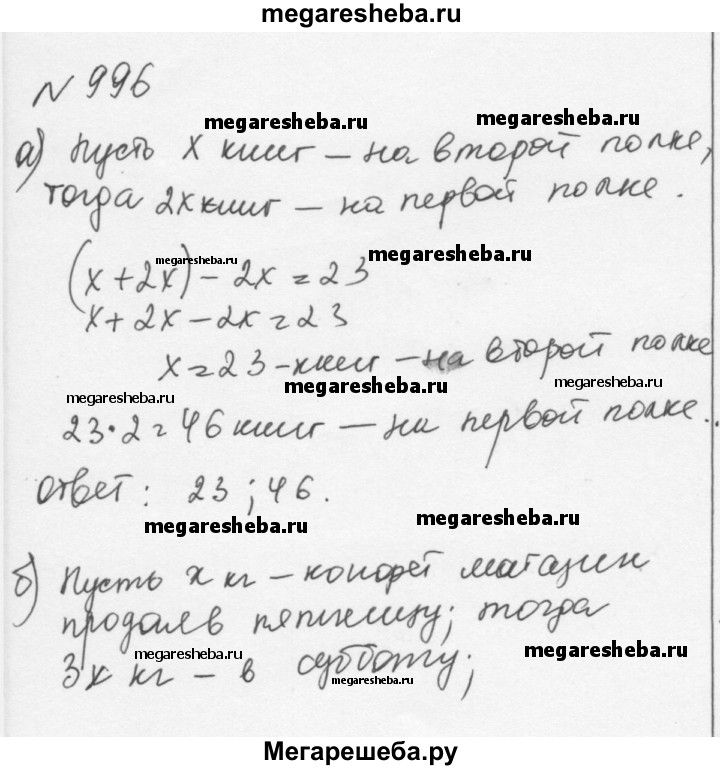 megaresheba.ru
№ 996
megaresheba.ru megaresheba.ru
а) Пусть x книг – на второй полке,
тогда 2x книг – на первой полке.
megaresheba.ru megaresheba.ru
(x + 2x) – 2x = 23
x + 2x – 2x = 23
x = 23 – книг – на второй полке
megaresheba.ru megaresheba.ru megaresheba.ru
23 · 2 = 46 книг – на первой полке.
ответ: 23 ; 46.
megaresheba.ru megaresheba.ru
б) Пусть x кг – конфет магазин
продал в пятницу; тогда
megaresheba.ru megaresheba.ru
3x кг – в субботу;
megaresheba.ru
Мегарешеба.ру